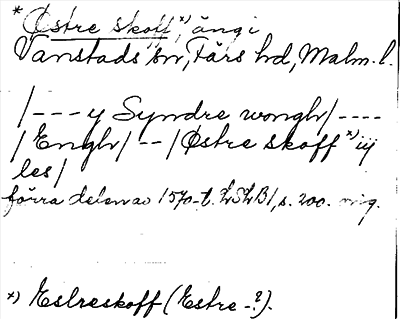 * Østre skoff *), äng i
Vanstads sn, Färs hd, Malm. l.
/--- y Syndre wonghr/----
/Enghr/--/Østre skoff *) iij
les/
förra delen av 1570-t. LSLB1, s. 200.
*) Estreskoff (Estre-?).